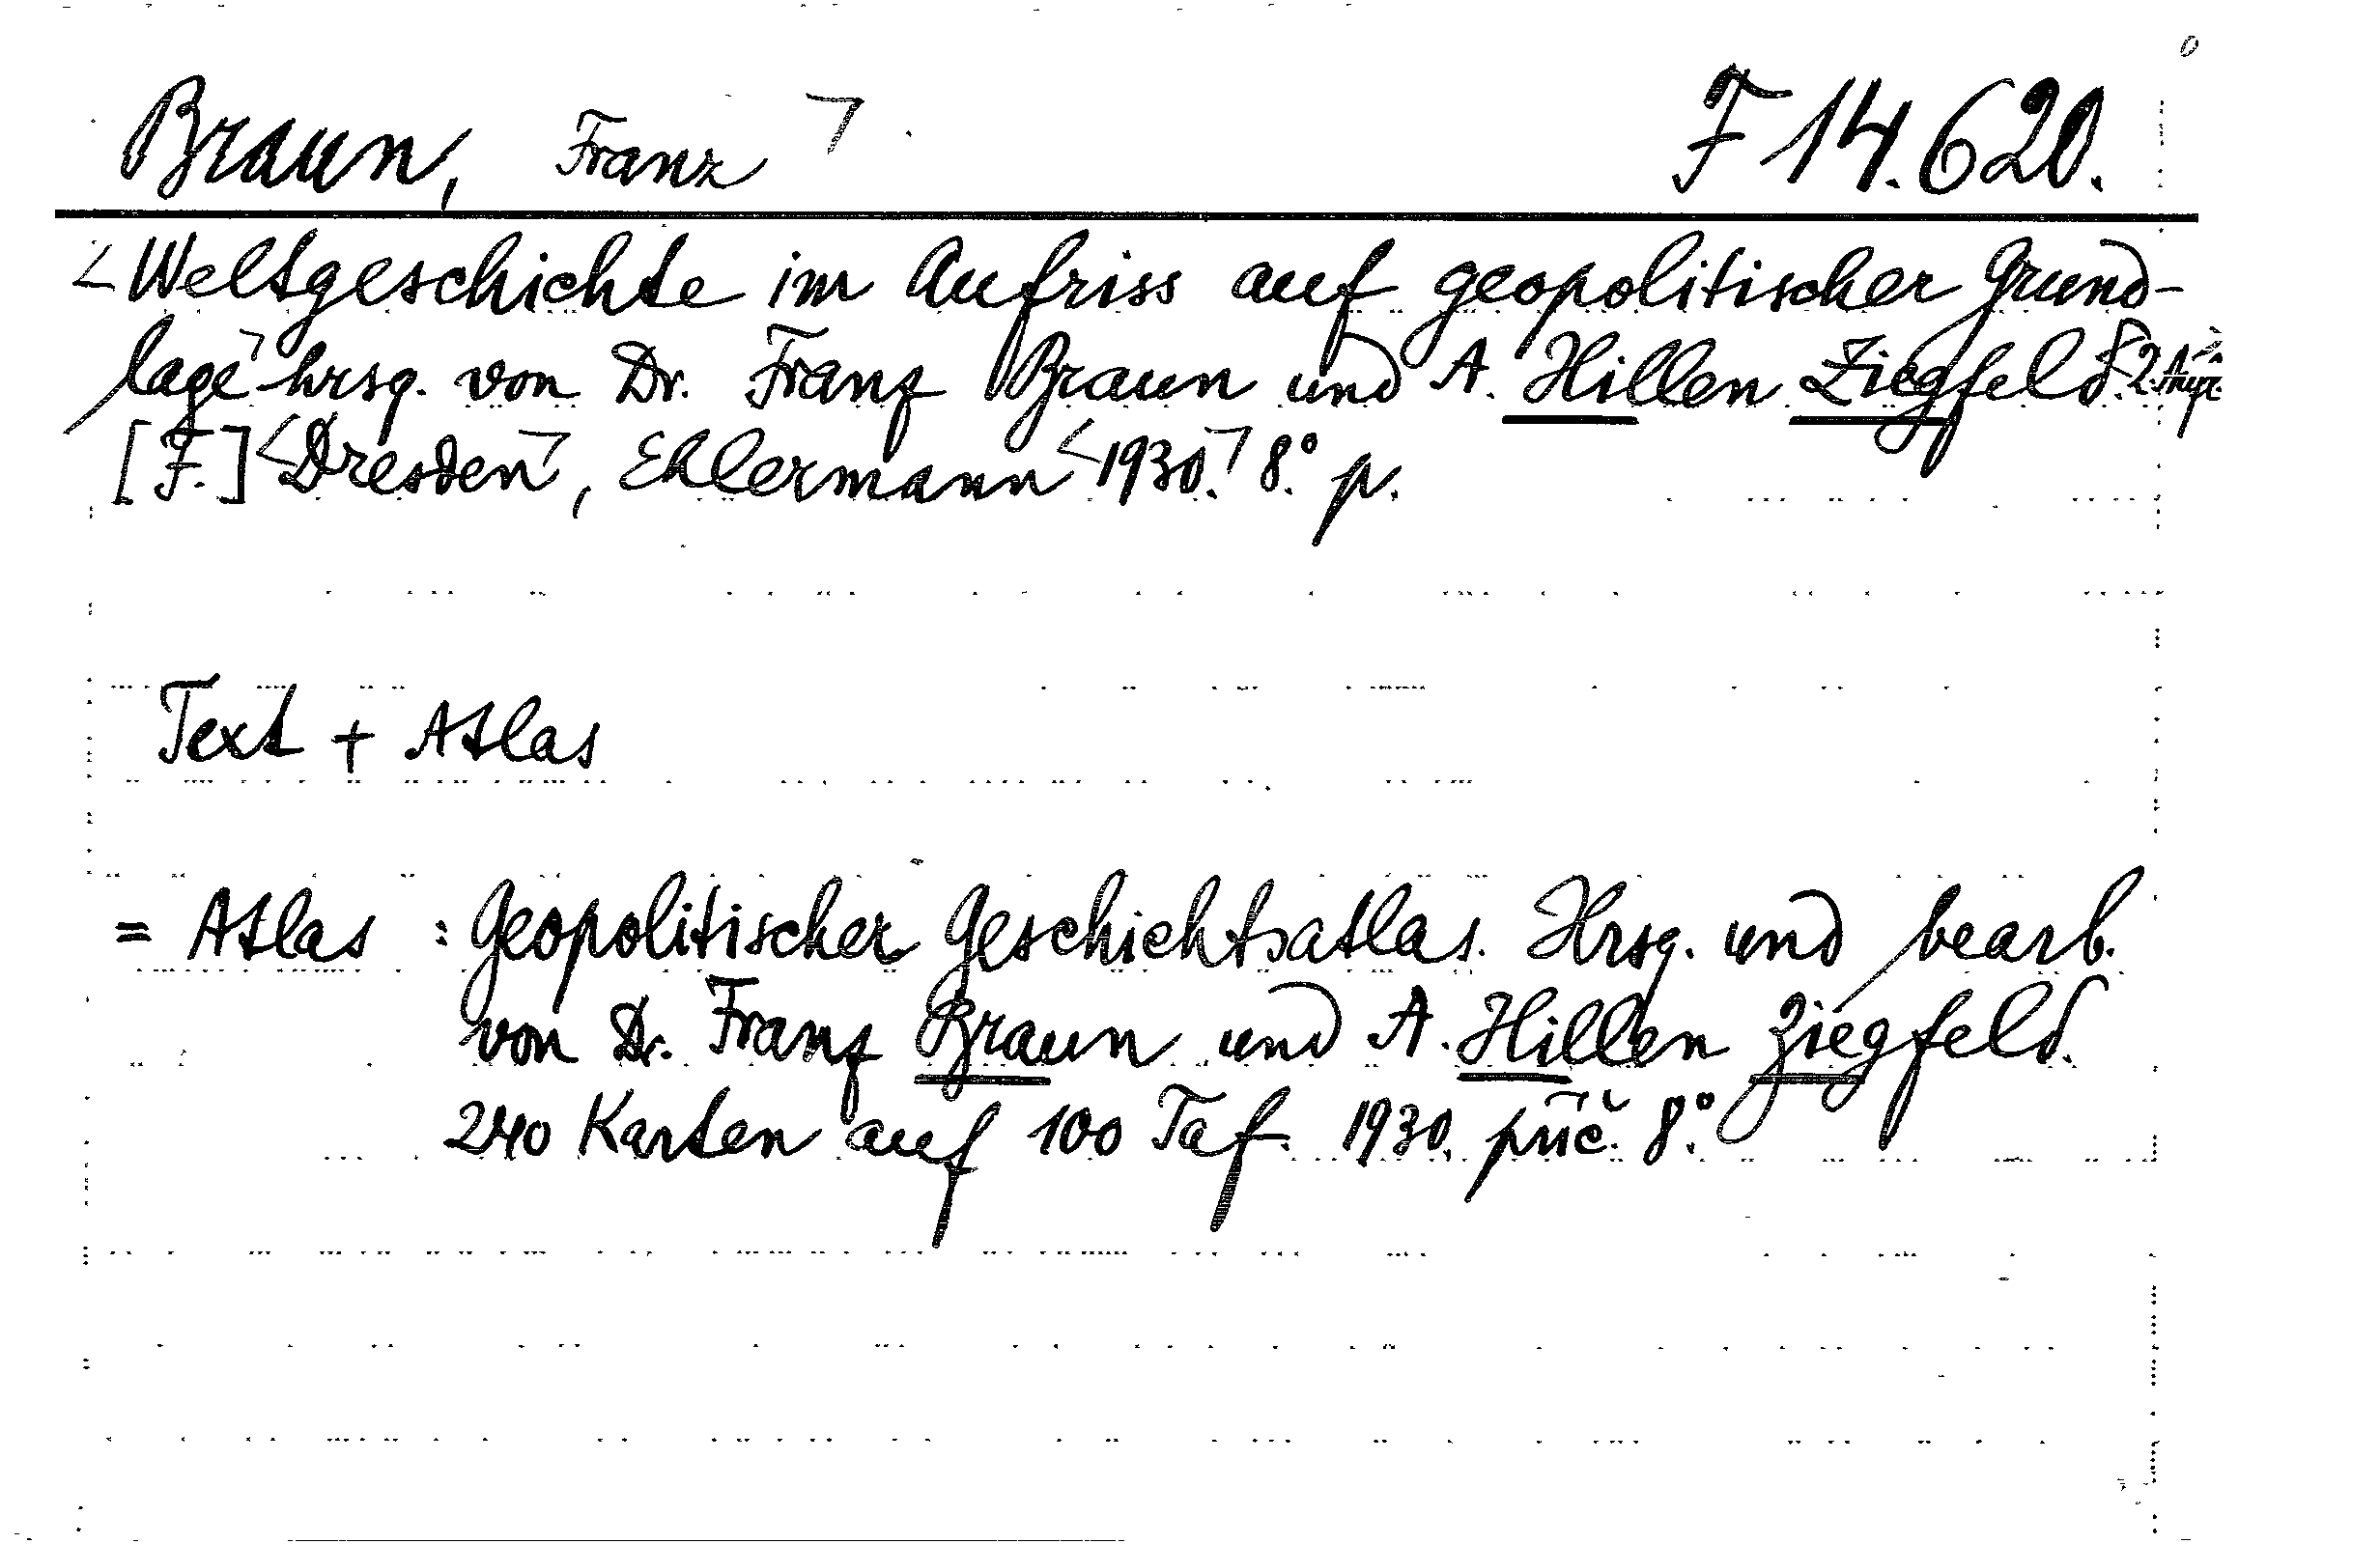 Braun, Franz F 14.620.
Weltgeschichte im Aufriss auf geopolitischer Grund-
lage hrsg. von Dr. Franz Braun und A. Hillen Ziegfeld. 2. Aufl.
[F.] Dresden, Ehlermann 1930. 8.° p.
Text + Atlas
= Atlas : Geopolitischer Geschichtsatlas. Hrsg. und bearb.
von Dr. Franz Braun und A. Hillen Ziegfeld.
240 Karten auf 100 Taf. 1930. příč. 8.°